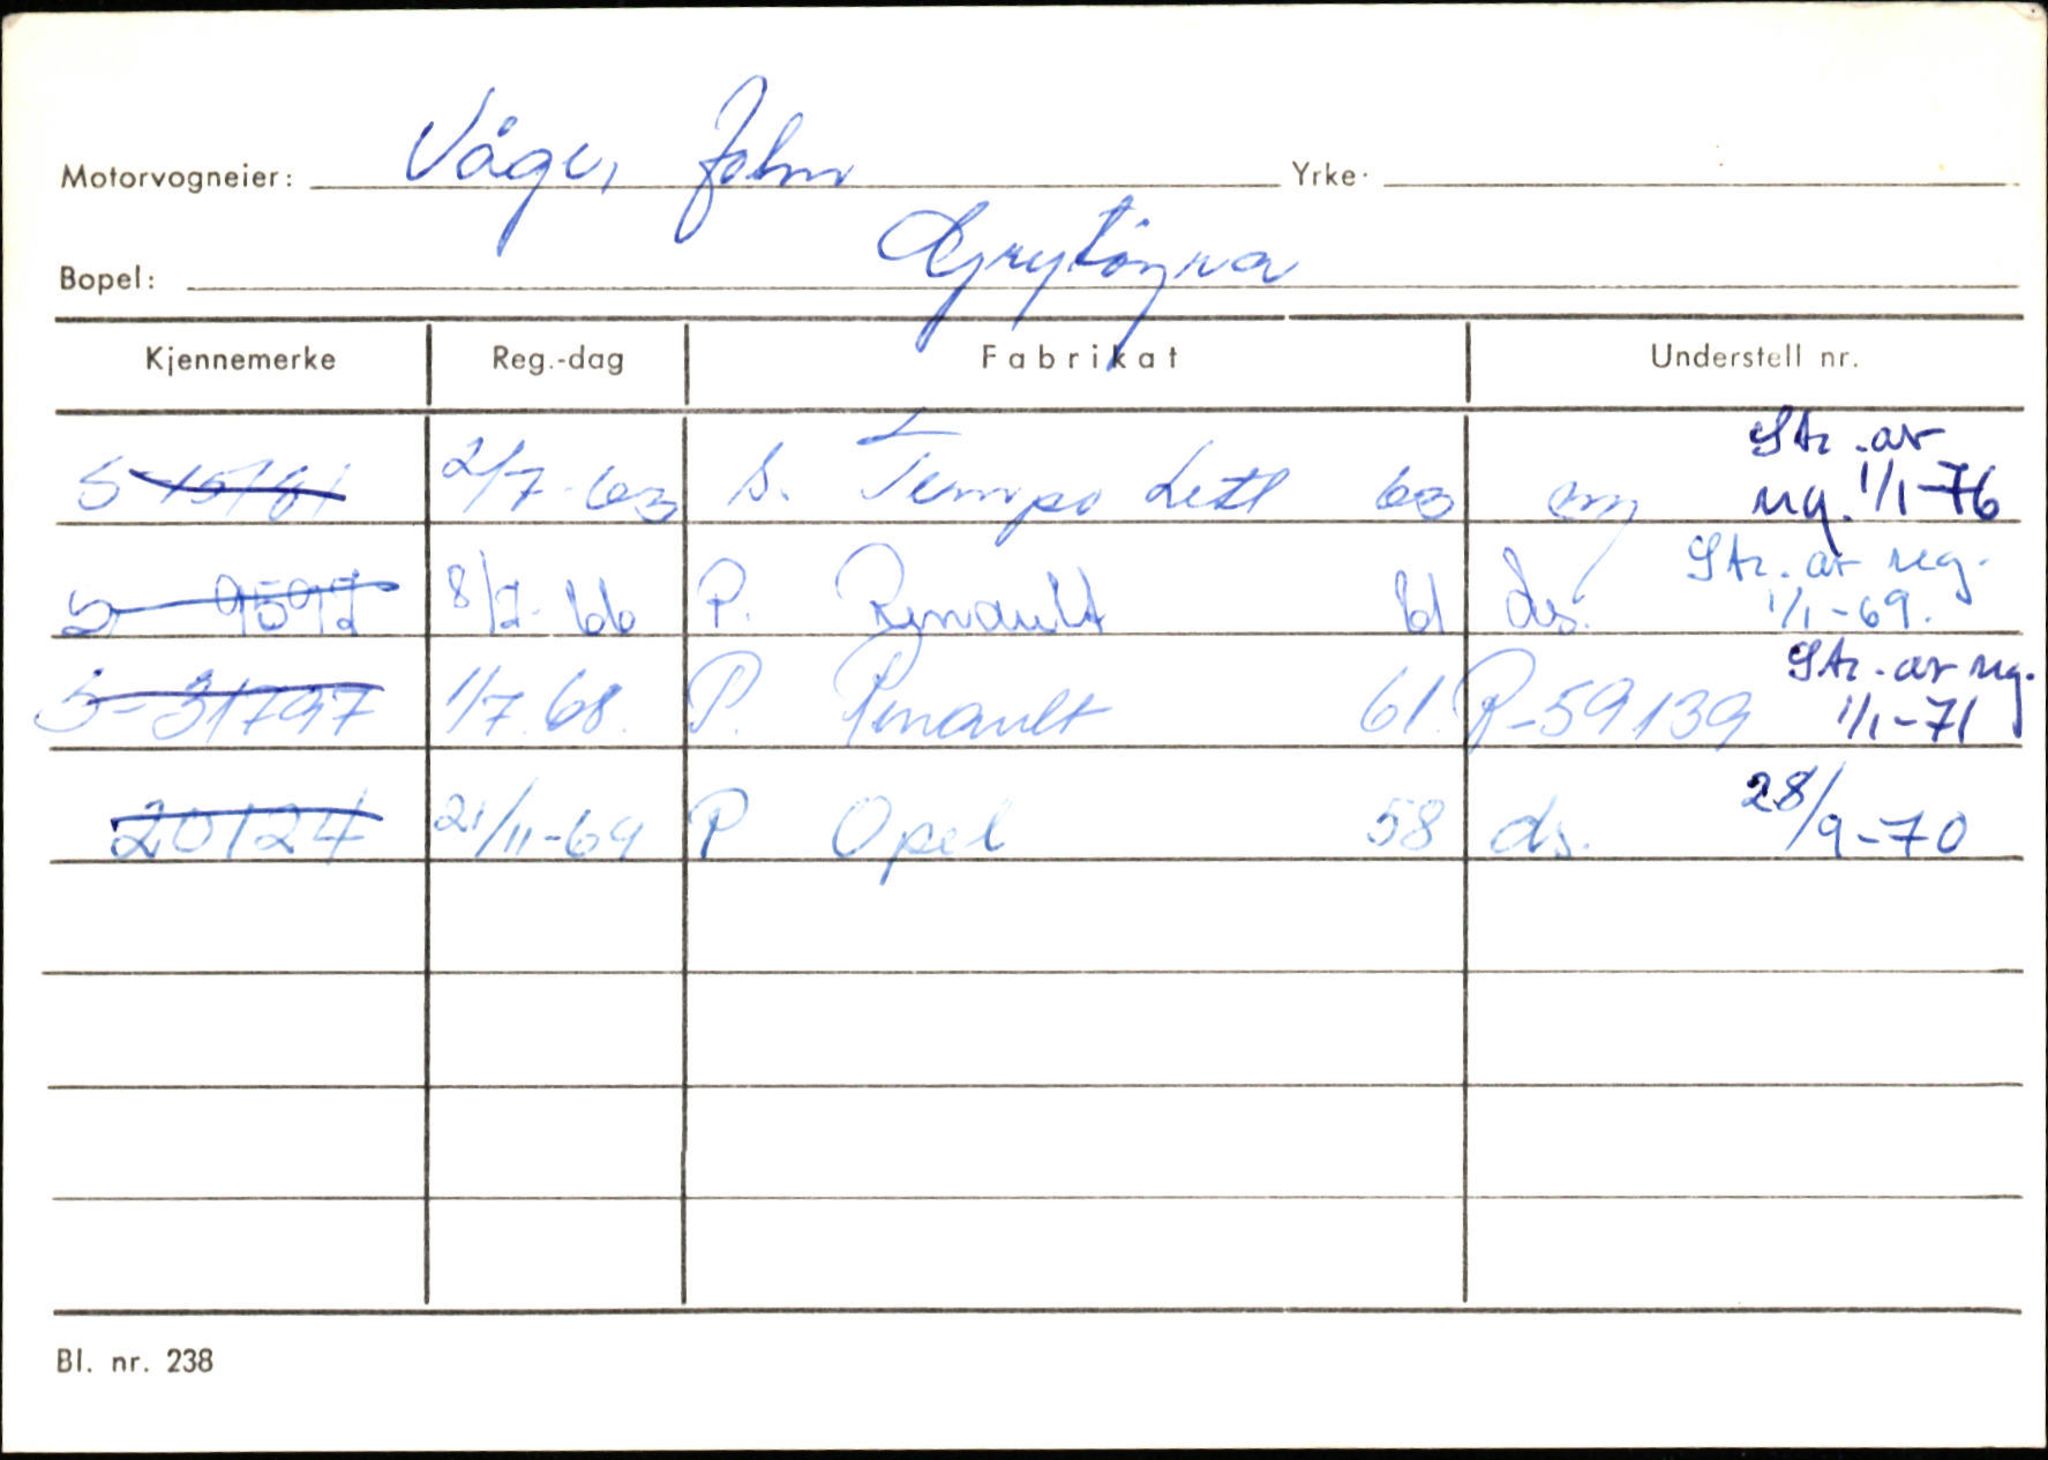 Motorvogneier: Våge, John Yrke:
Bopel: Grytöyra
Kjennemerke Reg.-dag Fabrikat Understell nr.
S-15781 2/7-63 S. Tempo Lett 63 Str. av reg. 1/1-76
S-9597 8/7-66 P. Renault 61 ds. Str. av reg. 1/1-69.
S-31797 1/7.68. P. Renault 61. R-59139 Str. av reg. 1/1-71
20124 21/11-69 P Opel 58 ds. 28/9-70
Bl. nr. 238